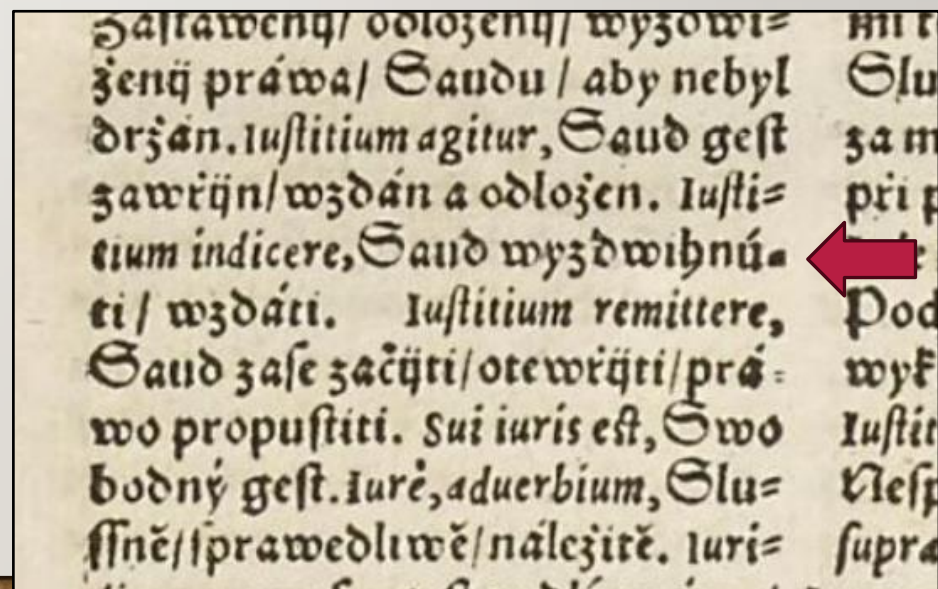 Zastawenij/ odloženij/ wyzdwi=
ženij práwa/ Saudu / aby nebyl
držán. Iuſtitium agitur, Saud geſt
zawřijn/ wzdán a odložen. Iuſti=
tium indicere, Saud wyzdwihnú=
ti/ wzdáti. Iuſtitium remittere,
Saud zaſe začijti/ otewřijti/ prá=
wo propuſtiti. Sui iuris eſt, Swo
bodný geſt. Iurè, aduerbium, Slu=
ſſně/ ſprawedliwě/ náležitě. Iuri=
Slu
za m
při p
Pod
wyk
Iuſtit
Neſp
ſupra